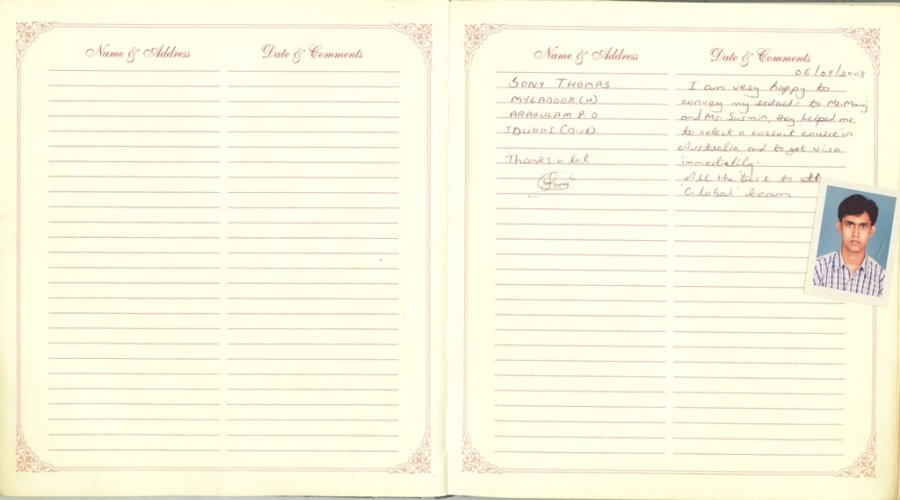 Name & Address
Date & Comments
Name & Address
Date & Comments
SONY THOMAS
MYLADOOR (H)
ARAKULAM P.O
IDUKKI (Dist)
Thanks a lot
06/09/2008
I am very happy to
convey my to Mr. Manoj
and Ms. they helped me
to select a course in
Australia and to get visa
immediatily.
All the best to all
'Global' team